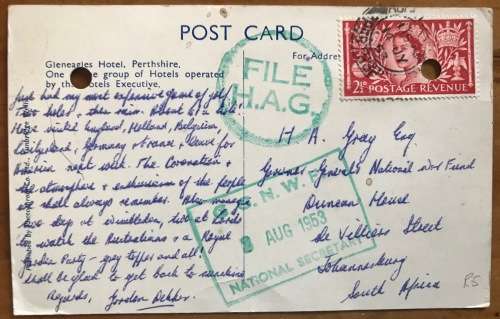 POST CARD
Gleneagles Hotel, Perthshire.
One of the group of Hotels operated
by the Hotels Executive.
For Address
FILE
H.A.G.
2½D POSTAGE REVENUE
Just had my most expensive game of golf
Two holes & then rain.
Have visited England, Holland, Belgium,
Switzerland, Germany & France. Leave for
next week. The Coronation &
the atmosphere & enthusiasm of the people
we shall always remember. Also managed
two days at Wimbledon, Test at Lords
to watch the Australians & a Royal
Garden Party - grey topper and all!
Shall be glad to get back to sunshine
Regards, Gordon Dekker.
H A Gray Esq
Governor General's National War Fund
Duncan House
De Villiers Street
Johannesburg
South Africa
N.W.F.
3 AUG 1953
NATIONAL SECRETARY
R5